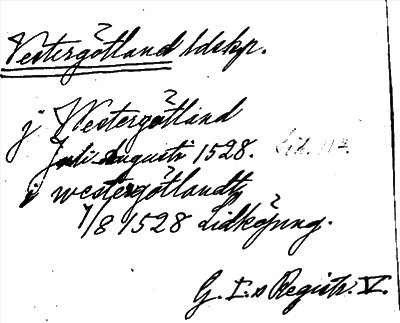 Vestergötland ldskp.
j Westergötland
Juli-Augusti 1528. Lid.
i westergötlandt
7/8 1528 Lidköping.
G. I:s Registr. V.